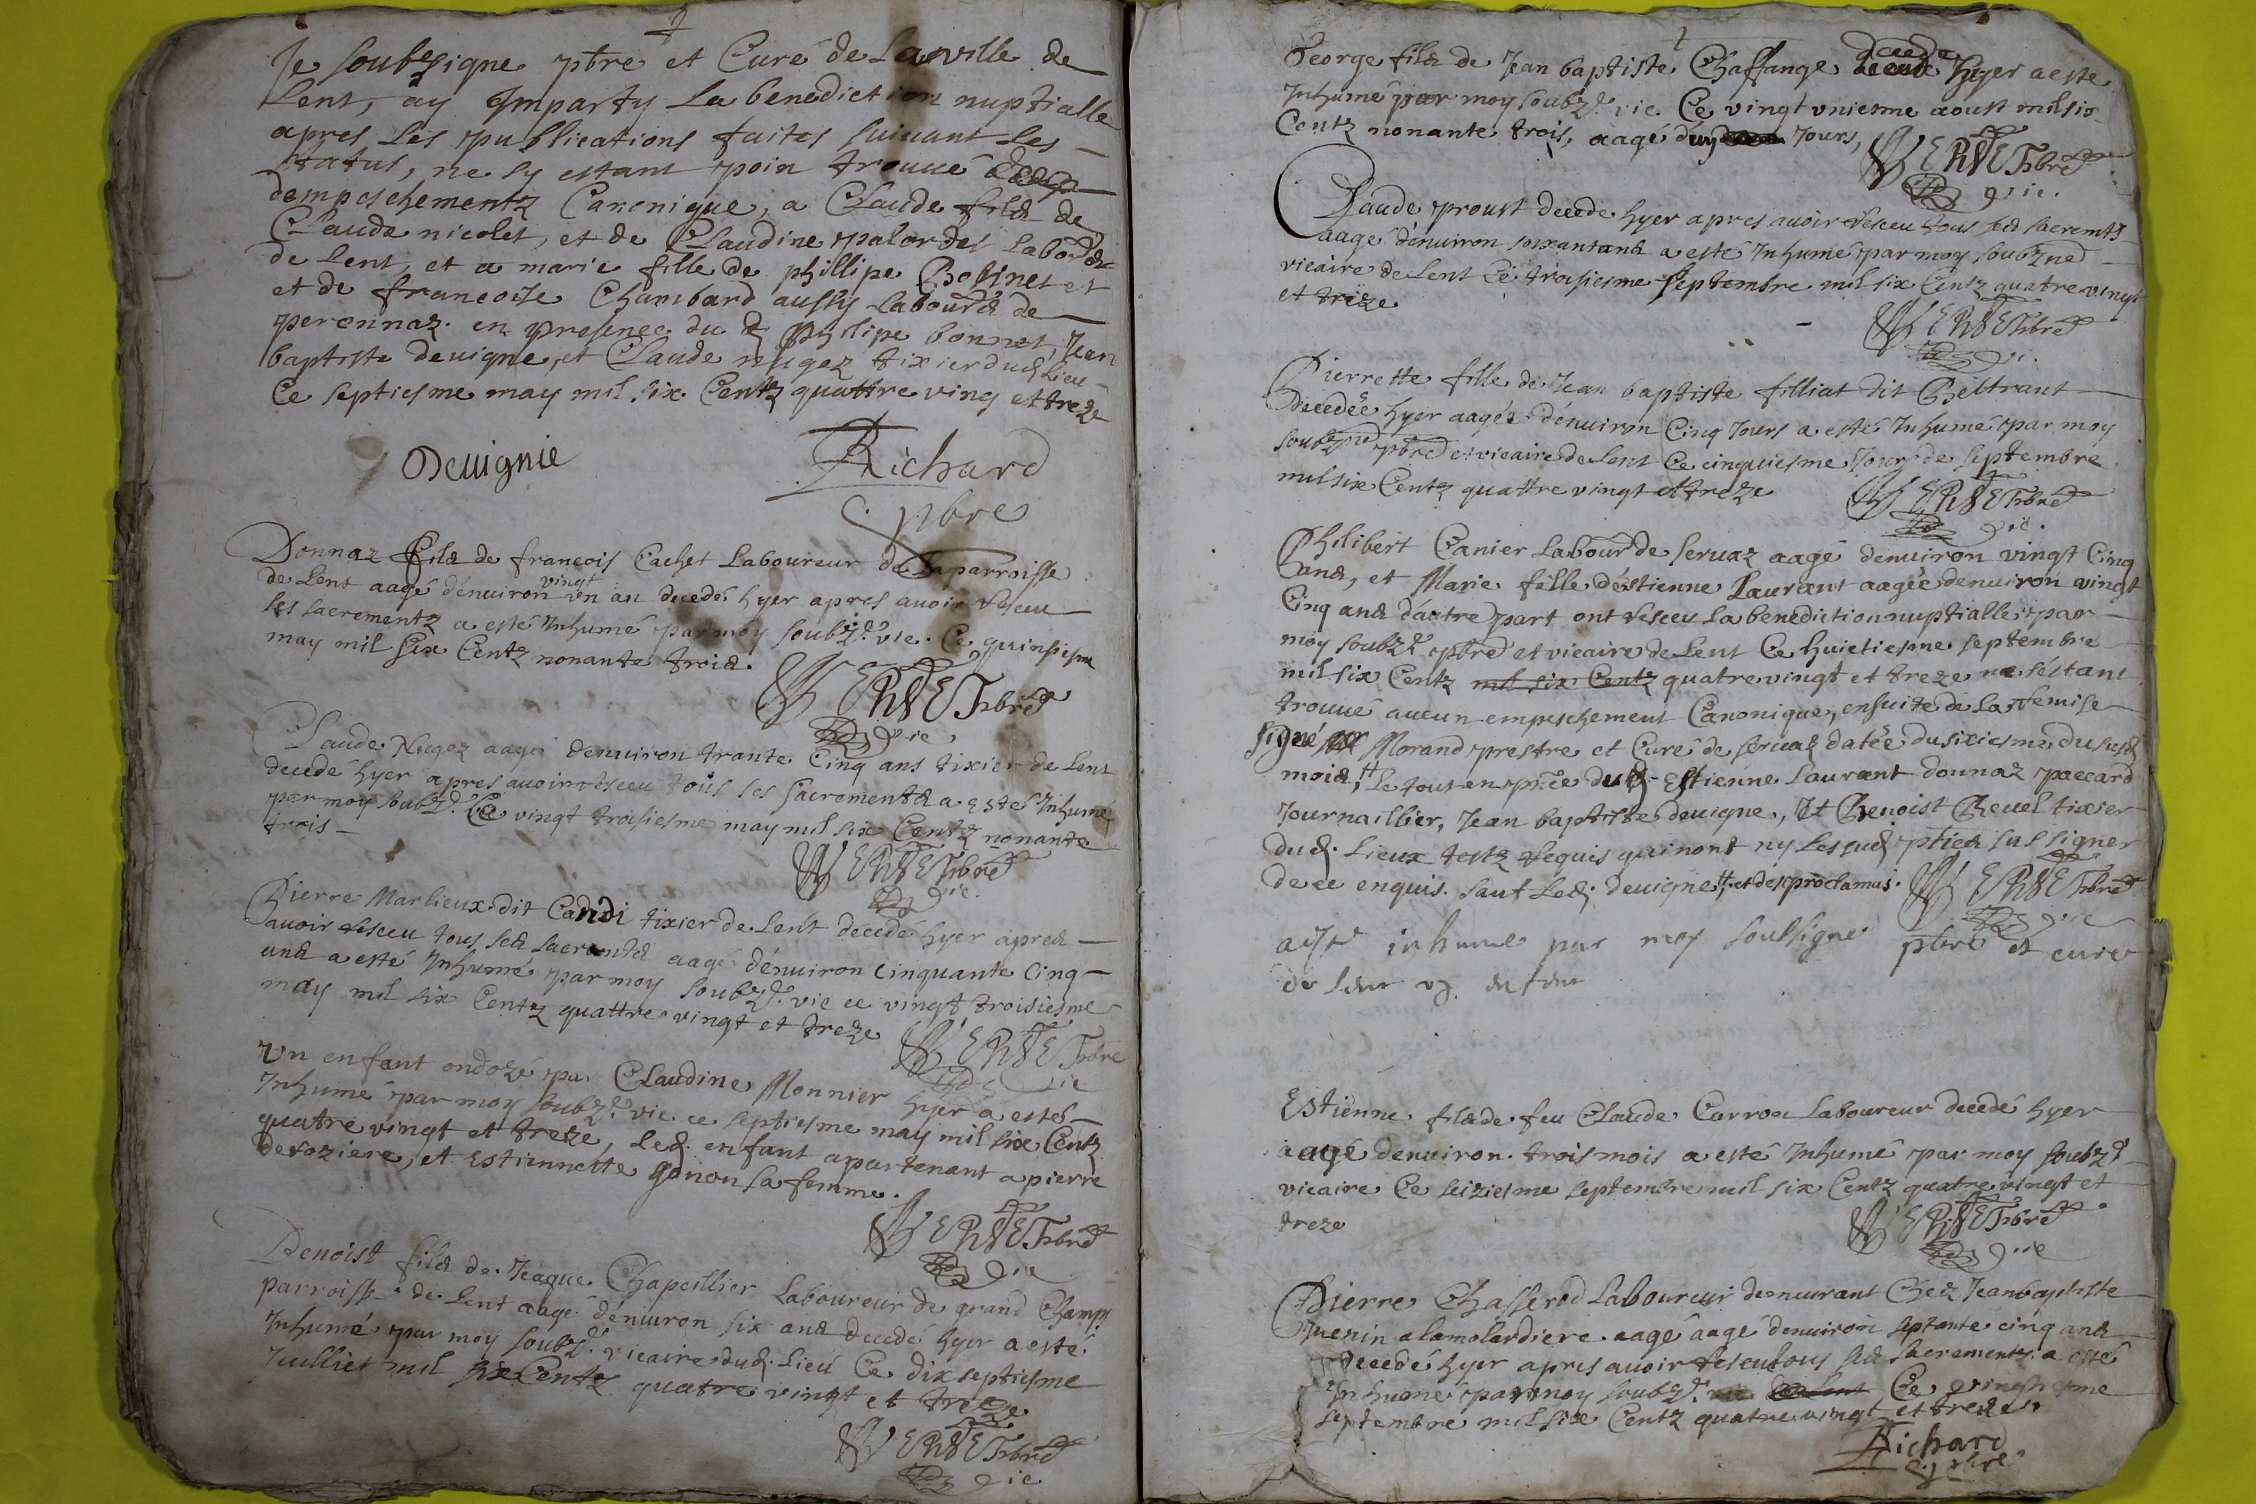 Je soubsigne pbre et Curé de La ville de
Lent, ay Imparty La benediction nuptialle
apres Les publications faites suiuant Les
status, ne sy estant poin trouué
dempeschementz Canonique, a Claude filz de
Claude nicolet, et de Claudine palordet Labordz
de Lent, et a marie fille de phillipe Bobinet et
et de francoise Chambard aussy Labourdz de
peronnaz. en presence du d philipe bonnet, Jean
baptiste deuigne, et Claude nugez tixier dud Lieu
Ce septiesme may mil six Centz quattre ving et treze
Deuignie
Richard
pbre
Donnaz filz de francois Cachet Laboureur de La parroisse
de Lent aagé d'enuiron vingt vn an decedé hyer apres auoir Reseu
les sacrementz a esté Inhumé par moy soubz.é vic. Ce quinsiesme
may mil six Centz nonante trois.
VERNE pbre
vic.
Claude Nugez aagé denuiron trante Cinq ans tixier de Lent
decedé hyer apres auoir Reseu tous ses Sacrementz a esté Inhumé
par moy soubz.é vic Ce vingt troisiesme may mil six Centz nonante
trois
VERNE pbre
vic.
Pierre Marlieux dit Candi tixier de Lent decedé hyer apres
auoir Reseu tous ses sacrementz aagé d'enuiron cinquante Cinq
ans a esté Inhumé par moy soubz.é vic ce vingt troisiesme
may mil six Centz quattre vingt et treze
VERNE pbre
vic
Vn enfant ondozé par Claudine Monnier hyer a esté
Inhumé par moy soubz.é vic. ce septiesme may mil six Centz
quatre vingt et treze, led. enfant apartenant a pierre
deroziere, et Estiennette gonon sa femme.
VERNE pbre
vic
Benoist filz de Jaque Chapeillier Laboureur de grand Champ
parroisse de Lent aagé d'enuiron six ans decedé hyer a esté
Inhumé par moy soubz.é vicaire dud. Lieu Ce dix septiesme
Juilliet mil six Centz quatre vingt et treze
VERNE pbre
vic
George filz de Jean baptiste Chaffange decedé hyer a esté
Inhumé par moy soubz.é vic. Ce vingt vniesme aoust mil six
Centz nonante trois, aagé d'un Jours,
VERNE pbre
vic.
Claude proust decedé hyer apres auoir Reseu tous ses sacremts
aagé d'enuiron soixantans a esté Inhumé par moy soubzné
vicaire de Lent Ce troisiesme septembre mil six Centz quatre vingt
et treze
VERNE pbre
vic.
Pierrette fille de Jean baptiste filliat dit Beltrant
Decedée hyer aagée denuiron Cinq Jours a esté Inhumé par moy
soubzné pbre et vicaire de Lent Ce cinquiesme Jour de septembre
mil six Centz quattre vingt et treze
VERNE pbre
vic.
Philibert Canier Labour de seruaz aagé denuiron vingt Cinq
ans, et Marie fille d'estienne Laurant aagée denuiron vingt
Cinq ans d'autre part ont Reseu La benediction nuptialle par
moy soubz.é pbre et vicaire de Lent Ce huictiesme septembre
mil six Centz mil six Centz quatre vingt et treze ne s'estant
trouué aucun empeschement Canonique, ensuite de La Remise
signé Morand prestre et Curé de seruaz datée du sixiesme du susd
mois, Le tout en pnce dud. Estienne Laurant donnaz paccard
Journaillier, Jean baptiste deuigne, Et Benoist Cheuel tixier
dud. Lieux testz Requis qui nont ny Les sud pties sus signer
de ce enquis. sauf Led. deuigne. et des proclamas.
VERNE pbre
vic
a esté inhumé par moy soubsigné pbre et curé
de Lent
Estienne filz de feu Claude Carron Laboureur decedé hyer
aagé denuiron trois mois a esté Inhumé par moy soubz.é
vicaire Ce seiziesme septembre mil six Centz quatre vingt et
treze
VERNE pbre
vic
Pierre Chasserod Laboureur demeurant Chez Jean baptiste
Guenin a la molardiere. aagé aagé denuiron septante cinq ans
decedé hyer apres auoir Reseu tous ses sacrementz a esté
Inhumé par moy soubz.é Ce vingtiesme
septembre mil six Centz quatre vingt et treze.
Richard
pbre